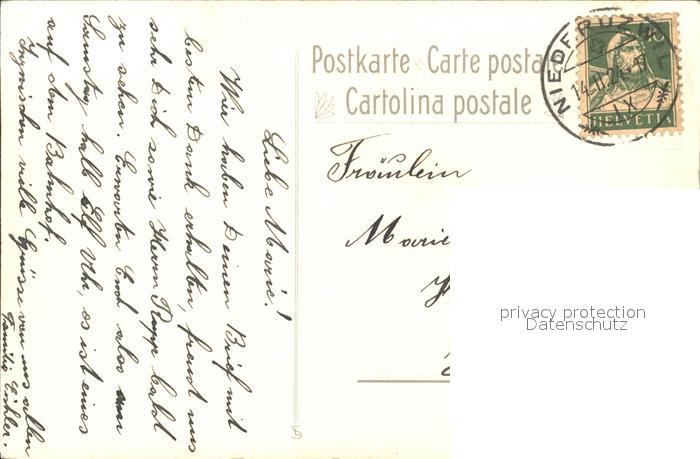 Postkarte Carte posta
Cartolina postale
HELVETIA
Fräulein
Marie
privacy protection
Datenschutz
Liebe Marie!
Wir haben Deinen Brief mit
bestem Dank erhalten, freut uns
sehr Dich sowie Herrn Rupp bald
zu sehen. Erwarten Euch also am
Samstag halb Elf Uhr, es ist eines
auf dem Bahnhof.
Inzwischen viele Grüsse von uns allen
Familie Eichler.